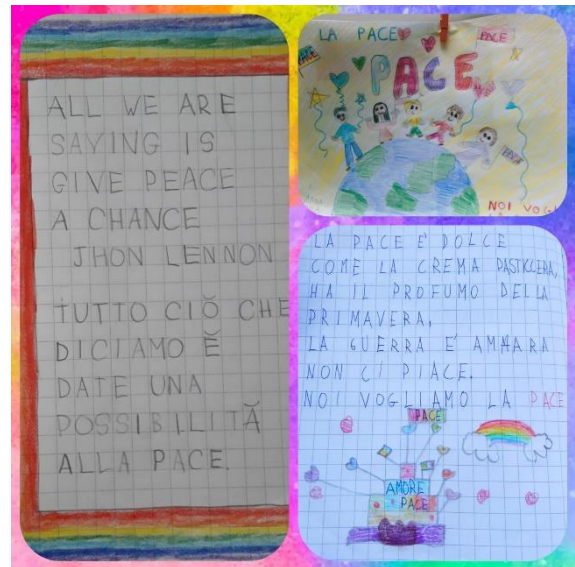 ALL WE ARE
SAYING IS
GIVE PEACE
A CHANCE
JHON LENNON
TUTTO CIÒ CHE
DICIAMO È
DATE UNA
POSSIBILITÀ
ALLA PACE.
LA PACE
PACE
PACE
PACE
NOI VOGL
LA PACE E' DOLCE
COME LA CREMA PASTICCERA,
HA IL PROFUMO DELLA
PRIMAVERA,
LA GUERRA E' AMARA
NON CI PIACE.
NOI VOGLIAMO LA PACE
PACE
AMORE
PACE